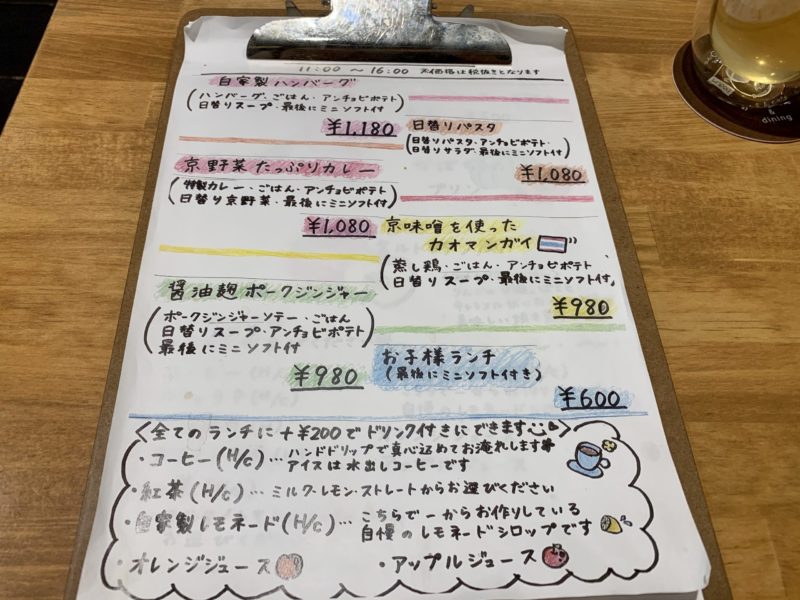 11:00 〜 16:00 ※価格は税抜きとなります
自家製ハンバーグ
(ハンバーグ・ごはん・アンチョビポテト
日替りスープ・最後にミニソフト付)
¥1,180
日替りパスタ
(日替りパスタ・アンチョビポテト・
日替りサラダ・最後にミニソフト付)
¥1,080
京野菜たっぷりカレー
(特製カレー・ごはん・アンチョビポテト
日替り京野菜・最後にミニソフト付)
¥1,080
京味噌を使った
カオマンガイ
(蒸し鶏・ごはん・アンチョビポテト
日替りスープ・最後にミニソフト付)
¥980
醤油麹ポークジンジャー
(ポークジンジャーソテー・ごはん
日替りスープ・アンチョビポテト
最後にミニソフト付)
¥980
お子様ランチ
(最後にミニソフト付き)
¥600
<全てのランチに+¥200でドリンク付きにできます>
・コーヒー(H/C)…ハンドドリップで真心込めてお淹れします
アイスは水出しコーヒーです
・紅茶(H/C)…ミルク・レモン・ストレートからお選びください
・自家製レモネード(H/C)…こちらで一からお作りしている
自慢のレモネードシロップです
・オレンジジュース
・アップルジュース
& dining